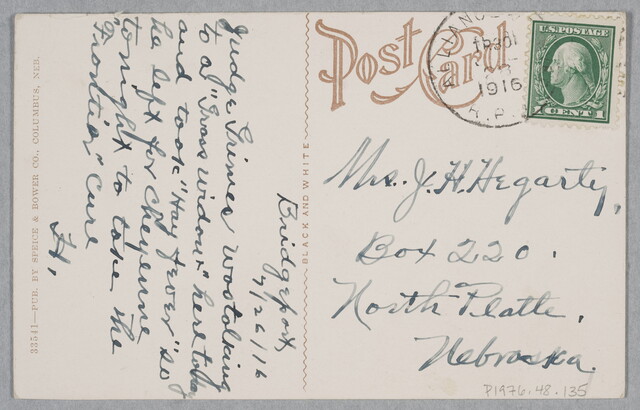 Post Card
1916
U.S. POSTAGE
1 CENTS 1
Bridgeport,
7/26/16
Judge Grimes was talking
to a "Grass widow" here today
and took "Hay fever" so
he left for Cheyenne
tonight to take the
"Frontier" Cure
H.
BLACK AND WHITE
33541—PUB. BY SPEICE & BOWER CO., COLUMBUS, NEB.
Mrs. J. H. Hegarty,
Box 220.
North Platte,
Nebraska.
P1976.48.135